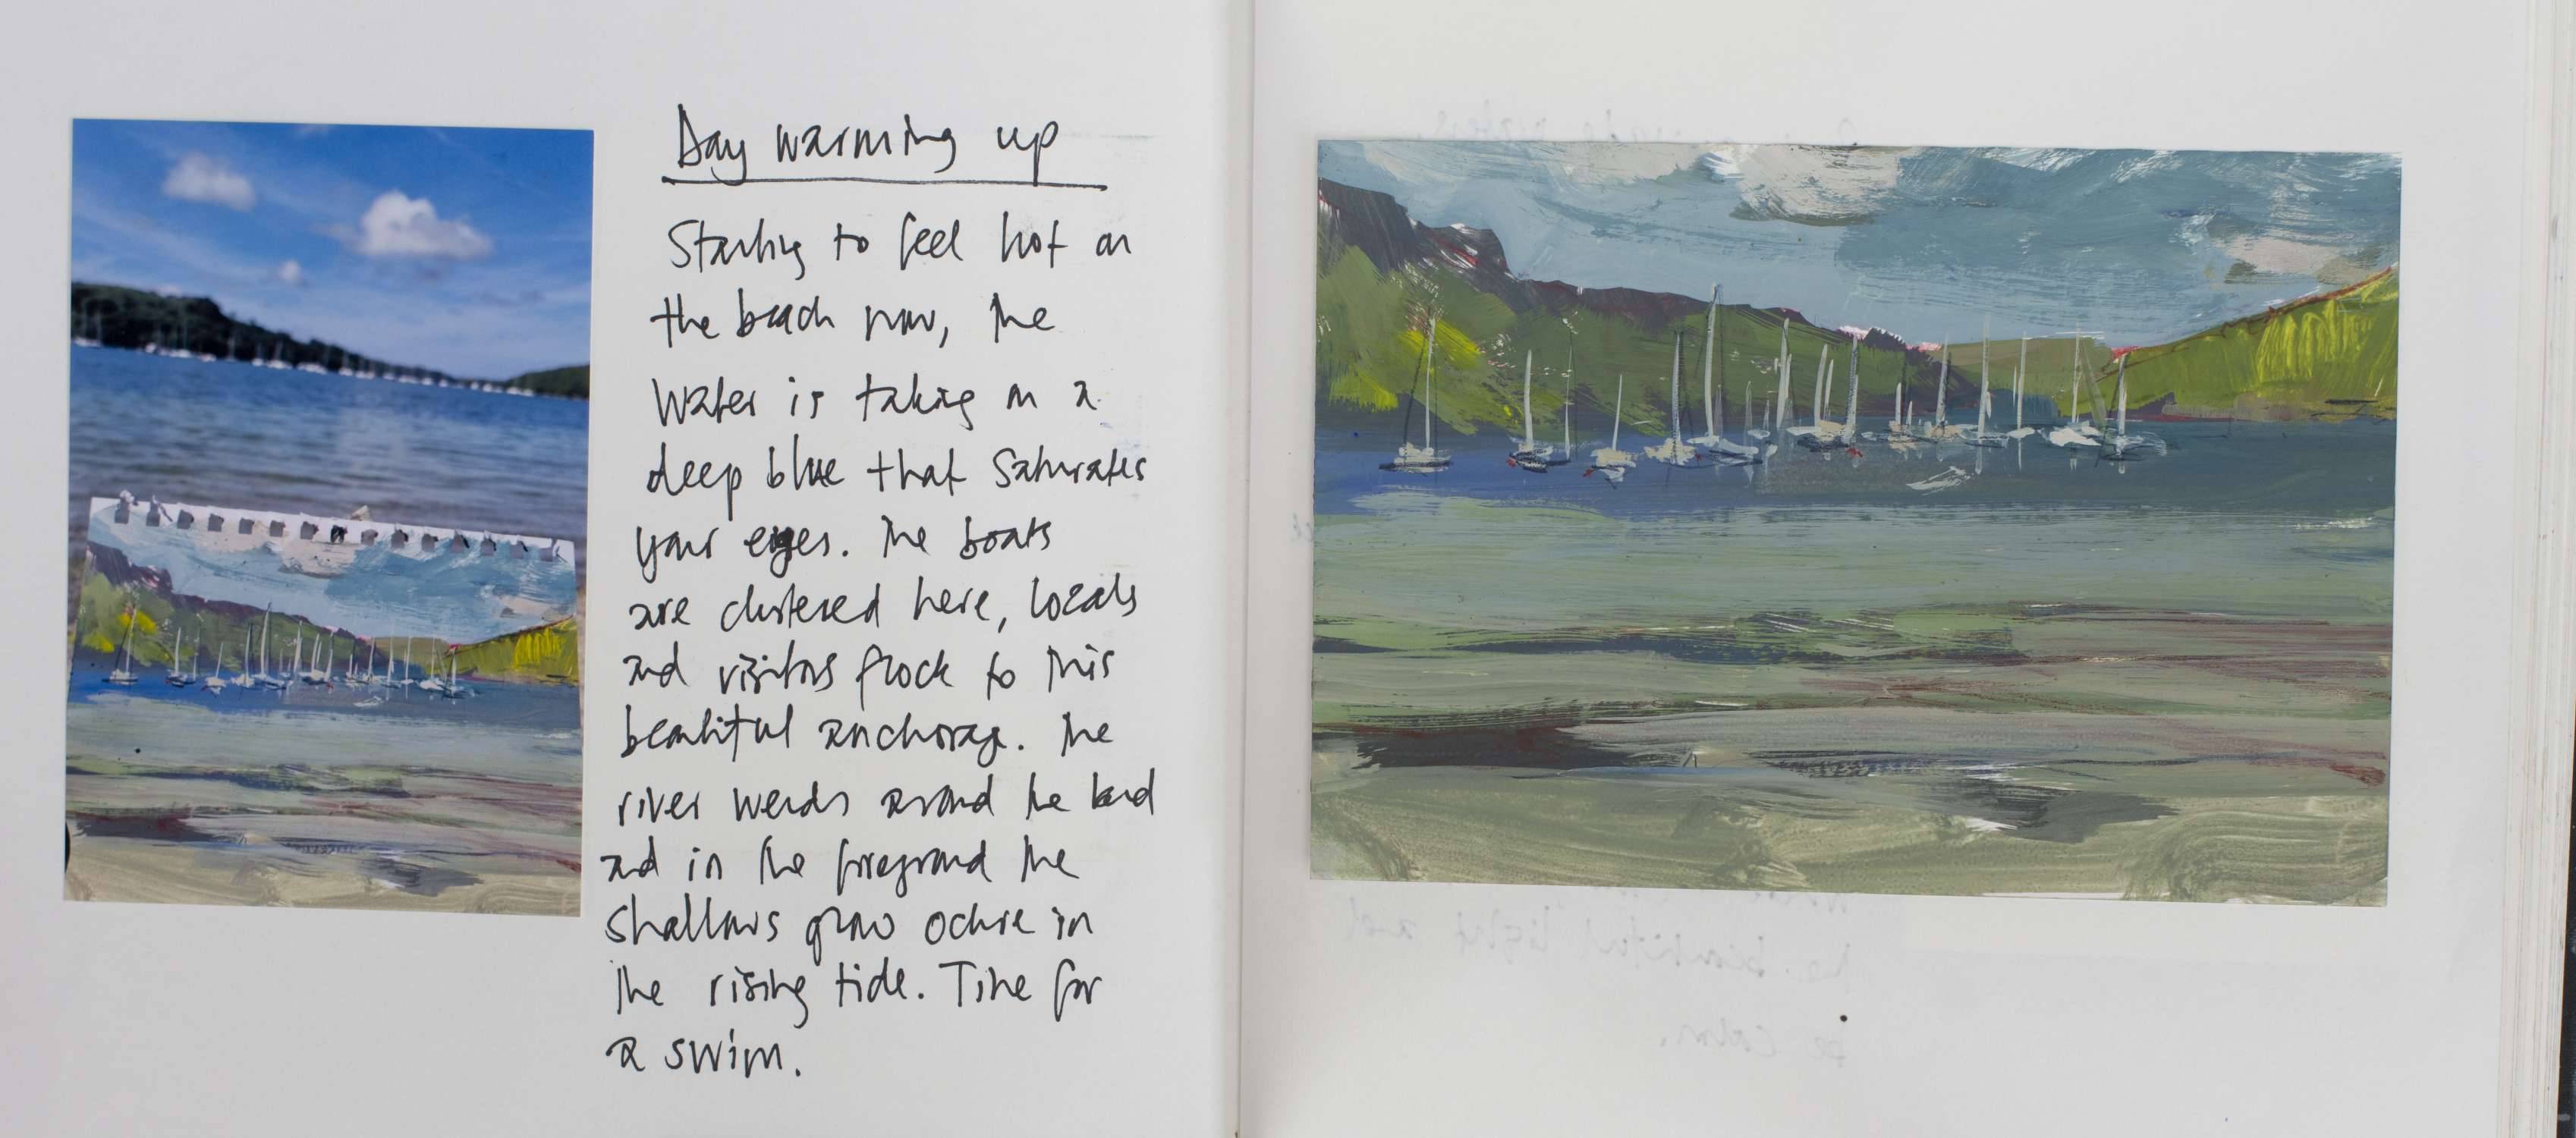 Day warming up
Starting to feel hot on
the beach now, the
water is taking on a
deep blue that saturates
your eyes. The boats
are clustered here, locals
and visitors flock to this
beautiful anchorage. The
river wends around the land
and in the foreground the
shallows grow ochre in
the rising tide. Time for
a swim.